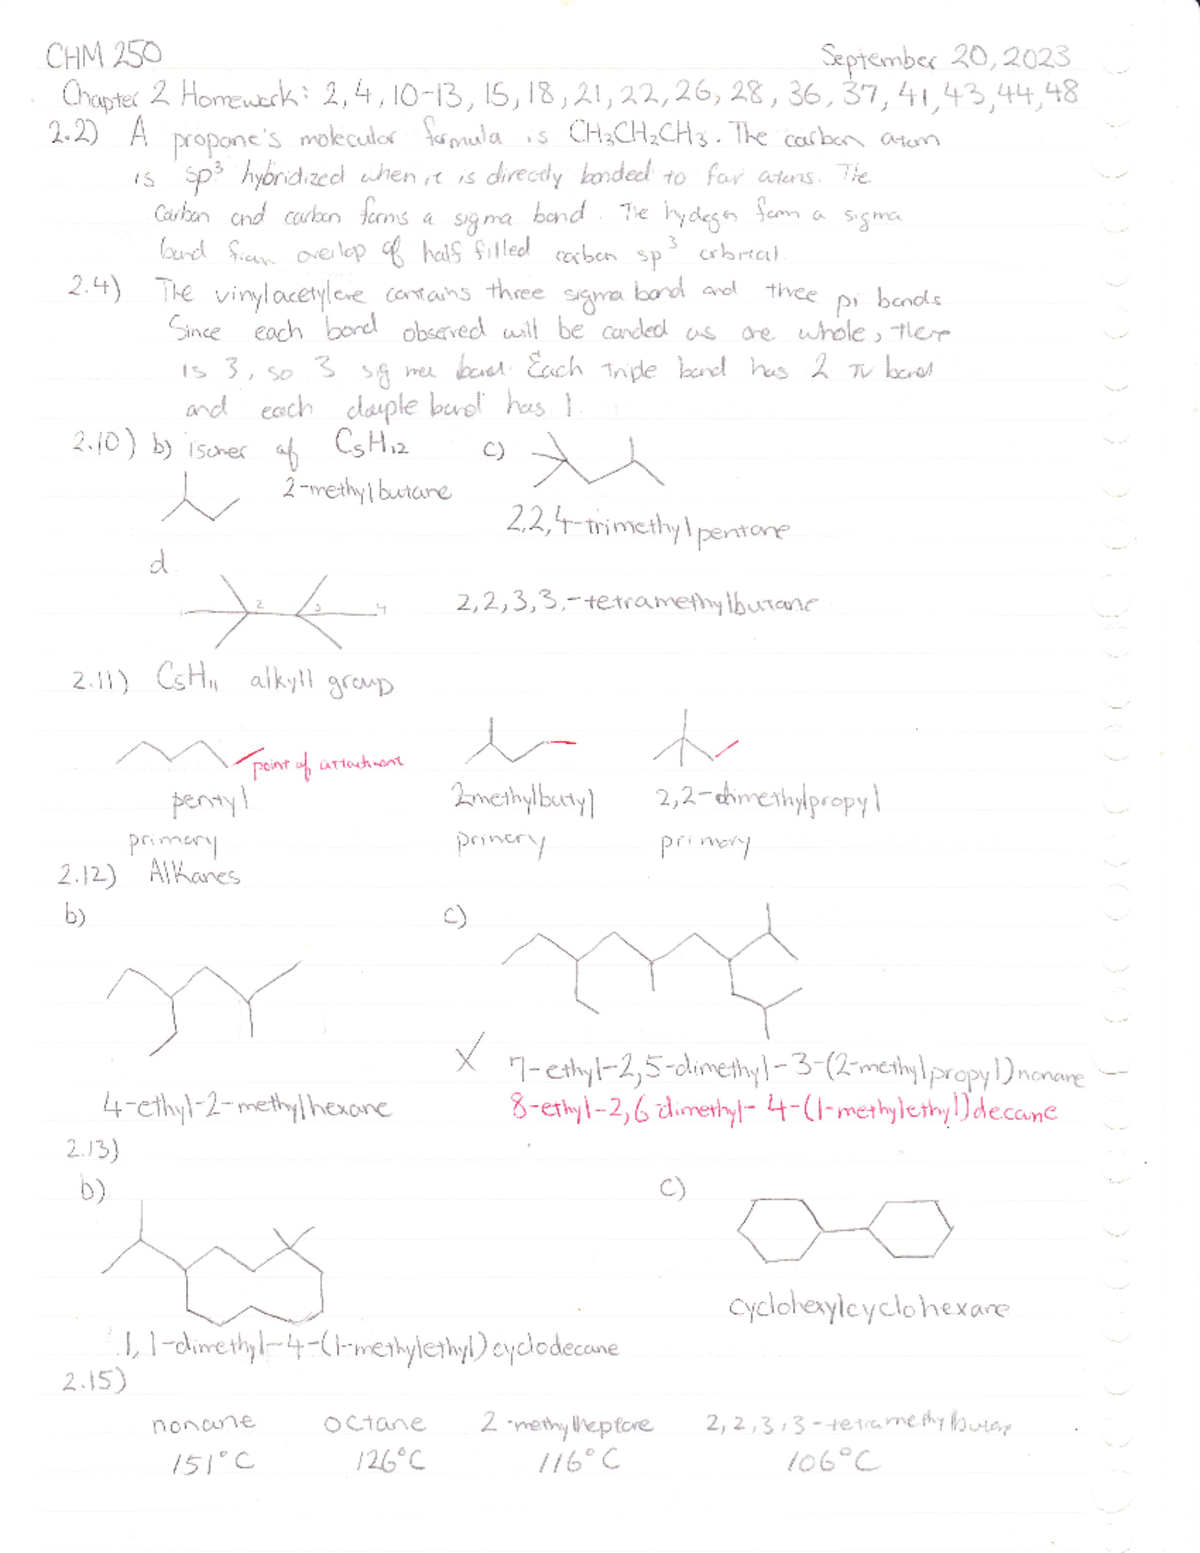 CHM 250 September 20, 2023
Chapter 2 Homework: 2, 4, 10-13, 15, 18, 21, 22, 26, 28, 36, 37, 41, 43, 44, 48
2.2) A propane's molecular formula is CH₃CH₂CH₃. The carbon atom
is sp³ hybridized when it is directly bonded to for atoms. The
Carbon and carbon forms a sigma bond. The hydogen form a sigma
bond from overlop of half filled carbon sp³ orbital.
2.4) The vinylacetylene contains three sigma bond and three pi bonds
Since each bond observed will be as one whole, there
is 3, so 3 sigma bond. Each triple bond has 2 π bond
and each double bond has 1.
2.10) b) isomer of C₅H₁₂ c)
2-methylbutane
2,2,4-trimethylpentane
d
2 3 4
2,2,3,3,-tetramethylbutane
2.11) C₅H₁₁ alkyll group
point of attachment
pentyl 2methylbutyl 2,2-dimethylpropyl
primary primery primary
2.12) Alkanes
b) c)
X 7-ethyl-2,5-dimethyl-3-(2-methylpropyl)nonane
4-ethyl-2-methylhexane 8-ethyl-2,6 dimethyl-4-(1-methylethyl)decane
2.13)
b) c)
cyclohexylcyclohexane
1,1-dimethyl-4-(1-methylethyl)cyclodecane
2.15)
nonane octane 2-methylheptane 2,2,3,3-tetramethylbutane
151°C 126°C 116°C 106°C